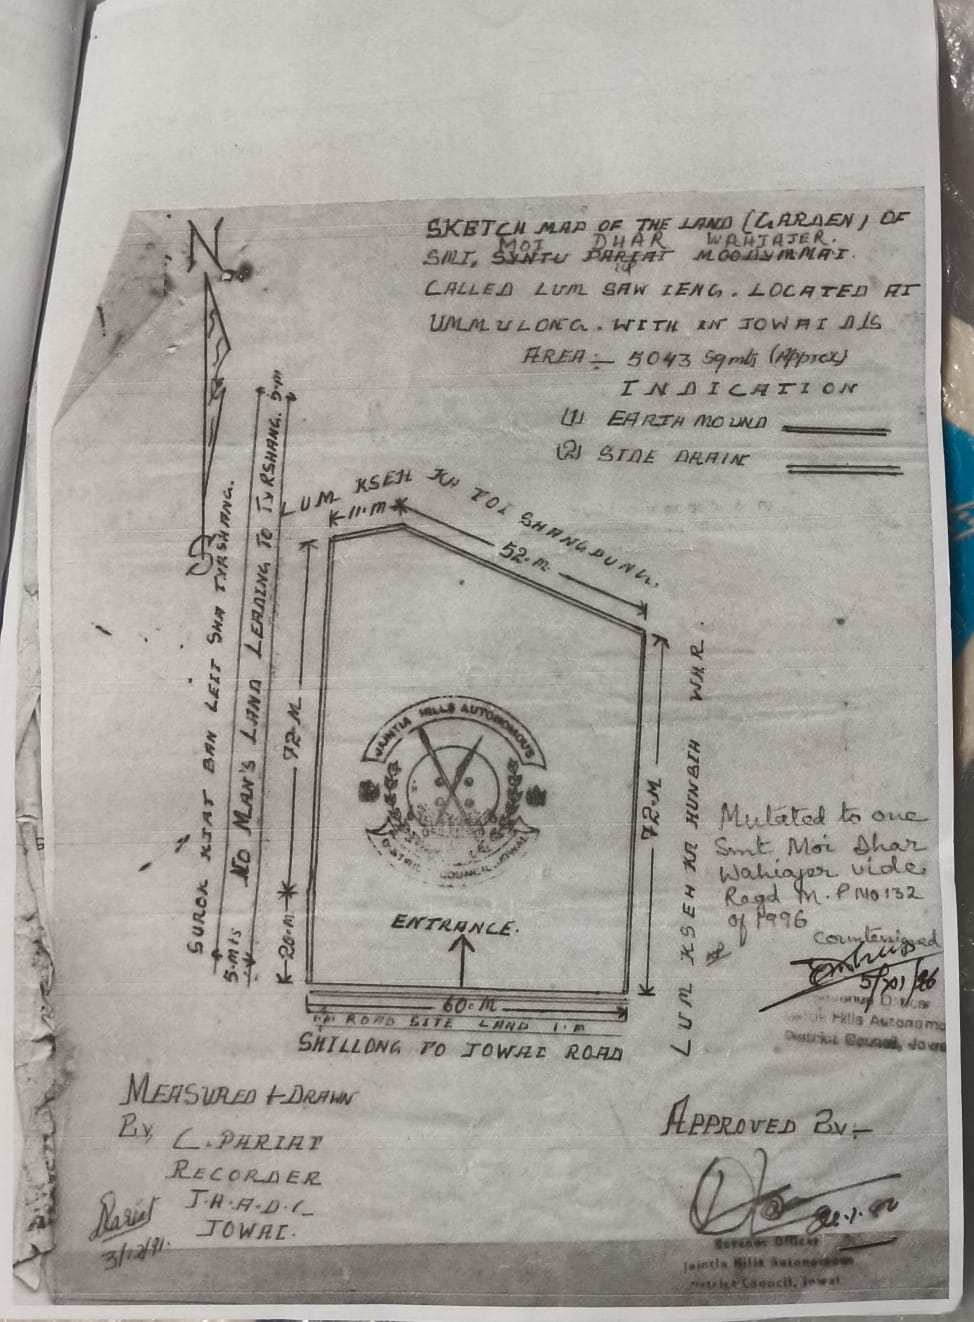 N
SKETCH MAP OF THE LAND (GARDEN) OF
MOI DHAR WAHIAJER.
SMT, SYNTU PARIAT MOODYMMAI.
CALLED LUM SAW IENG. LOCATED AT
UMMULONG. WITH IN JOWAI D/S
AREA:- 5043 Sqmts (Approx)
INDICATION
(1) EARTH MOUND
(2) SIDE DRAIN
LUM KSEH KA TOI SHANGDUNG.
11.M
52.M
SUROK KIAT BAN LEIT SHA TYRSHANG.
5.Mts NO MAN'S LAND LEADING TO TYRSHANG. 5.M
72.M
20.M
72.M
LUM KSEH KA HUNBIH WAR.
JAINTIA HILLS AUTONOMOUS
DISTRICT COUNCIL, JOWAI
ENTRANCE.
60.M
1.M ROAD SITE LAND 1.M
SHILLONG TO JOWAI ROAD
Mutated to one
Smt Moi Dhar
Wahiajer vide
Regd M.P No 132
of 1996
Countersigned
5/XI/96
Revenue Officer
Jaintia Hills Autonomo
District Council, Jowa
MEASURED & DRAWN
By, C. PARIAT
RECORDER
J.H.A.D.C
JOWAI.
Pariat
3/12/91.
APPROVED By:-
Revenue Officer
Jaintia Hills Autonomous
District Council, Jowai